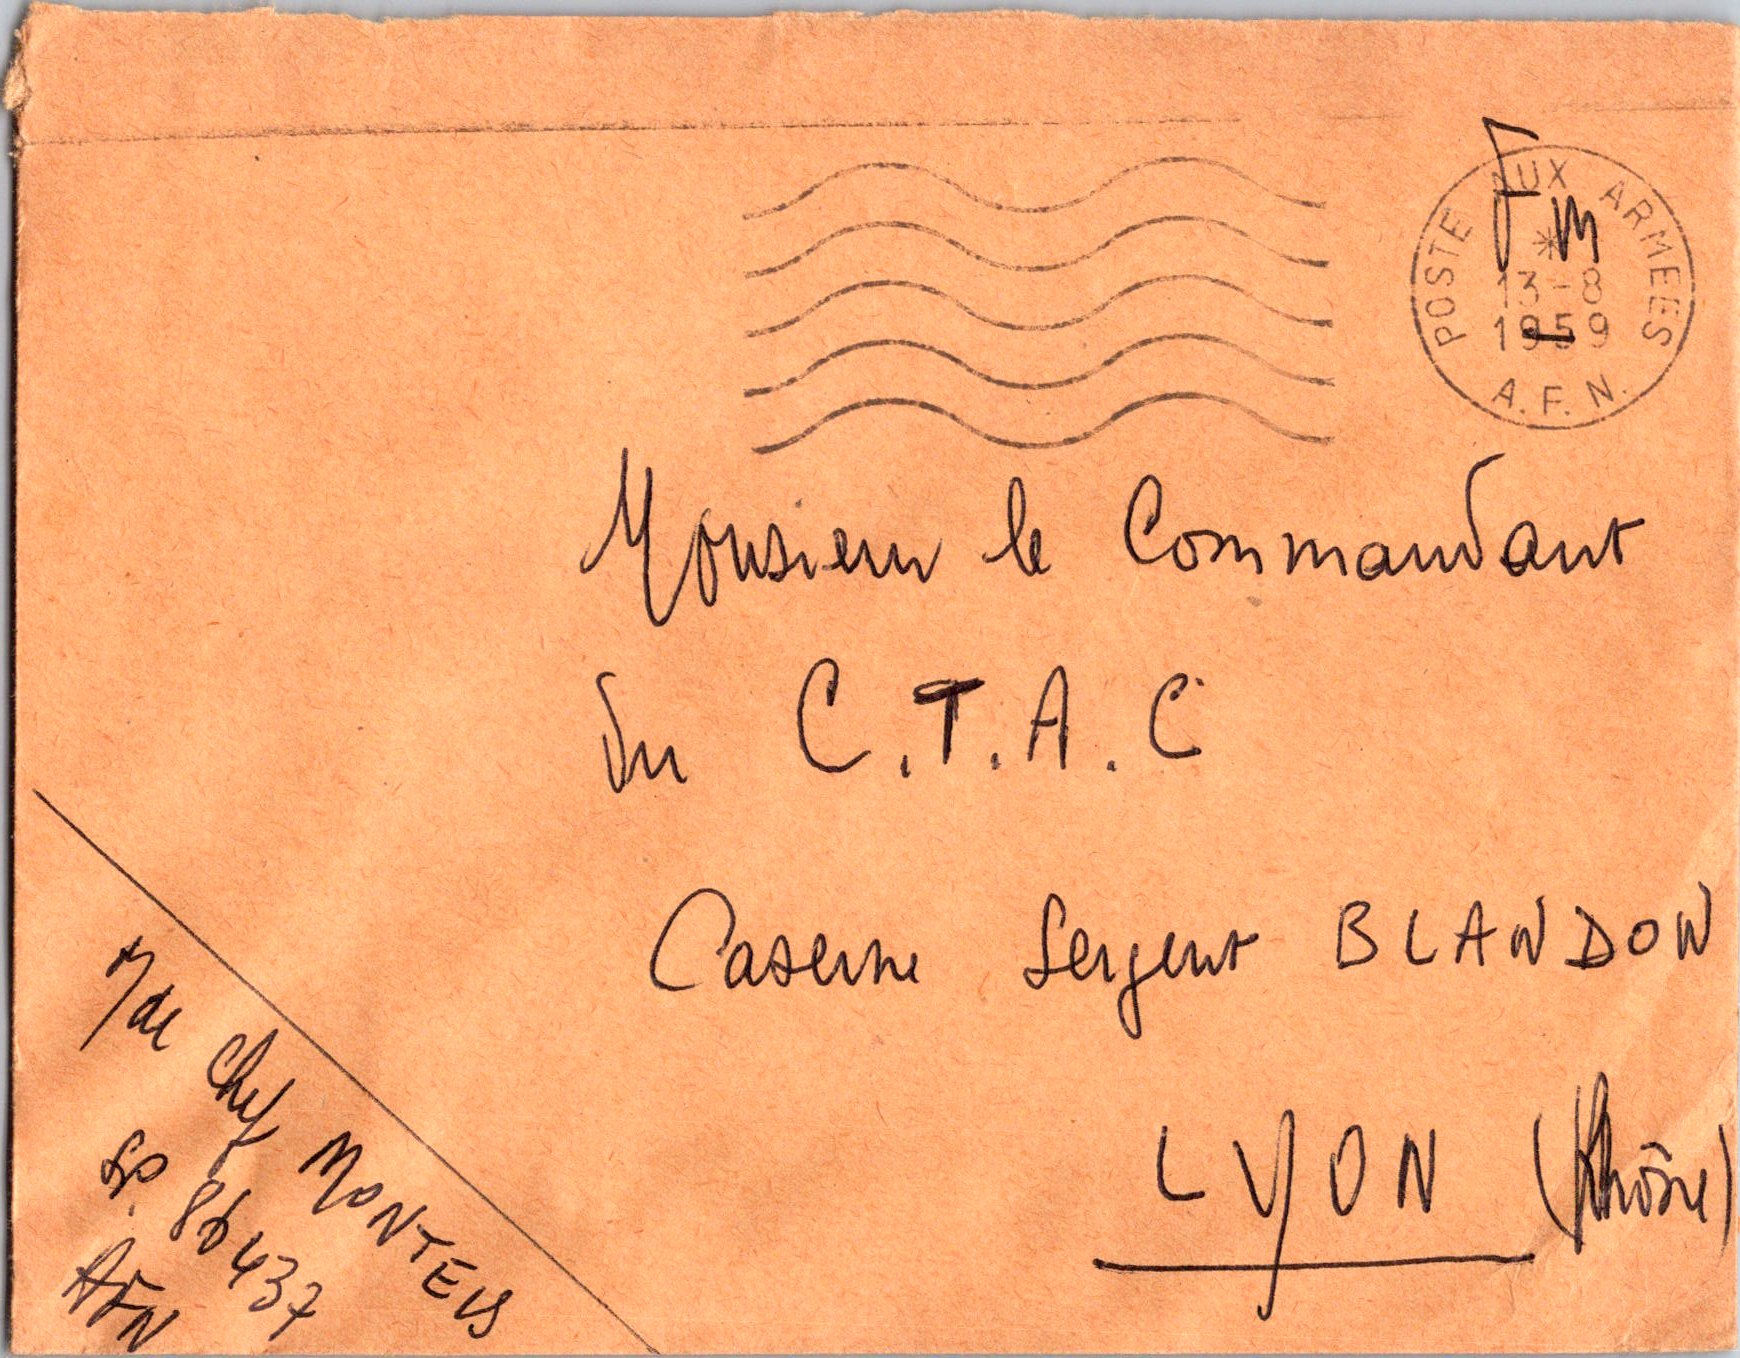 POSTE AUX ARMEES
13-8
1959
A.F.N.
F M
Monsieur le Commandant
du C.T.A.C
Caserne Sergent BLANDON
LYON (Rhône)
Mdl Chef MONTEIS
SP. 86437
AFN